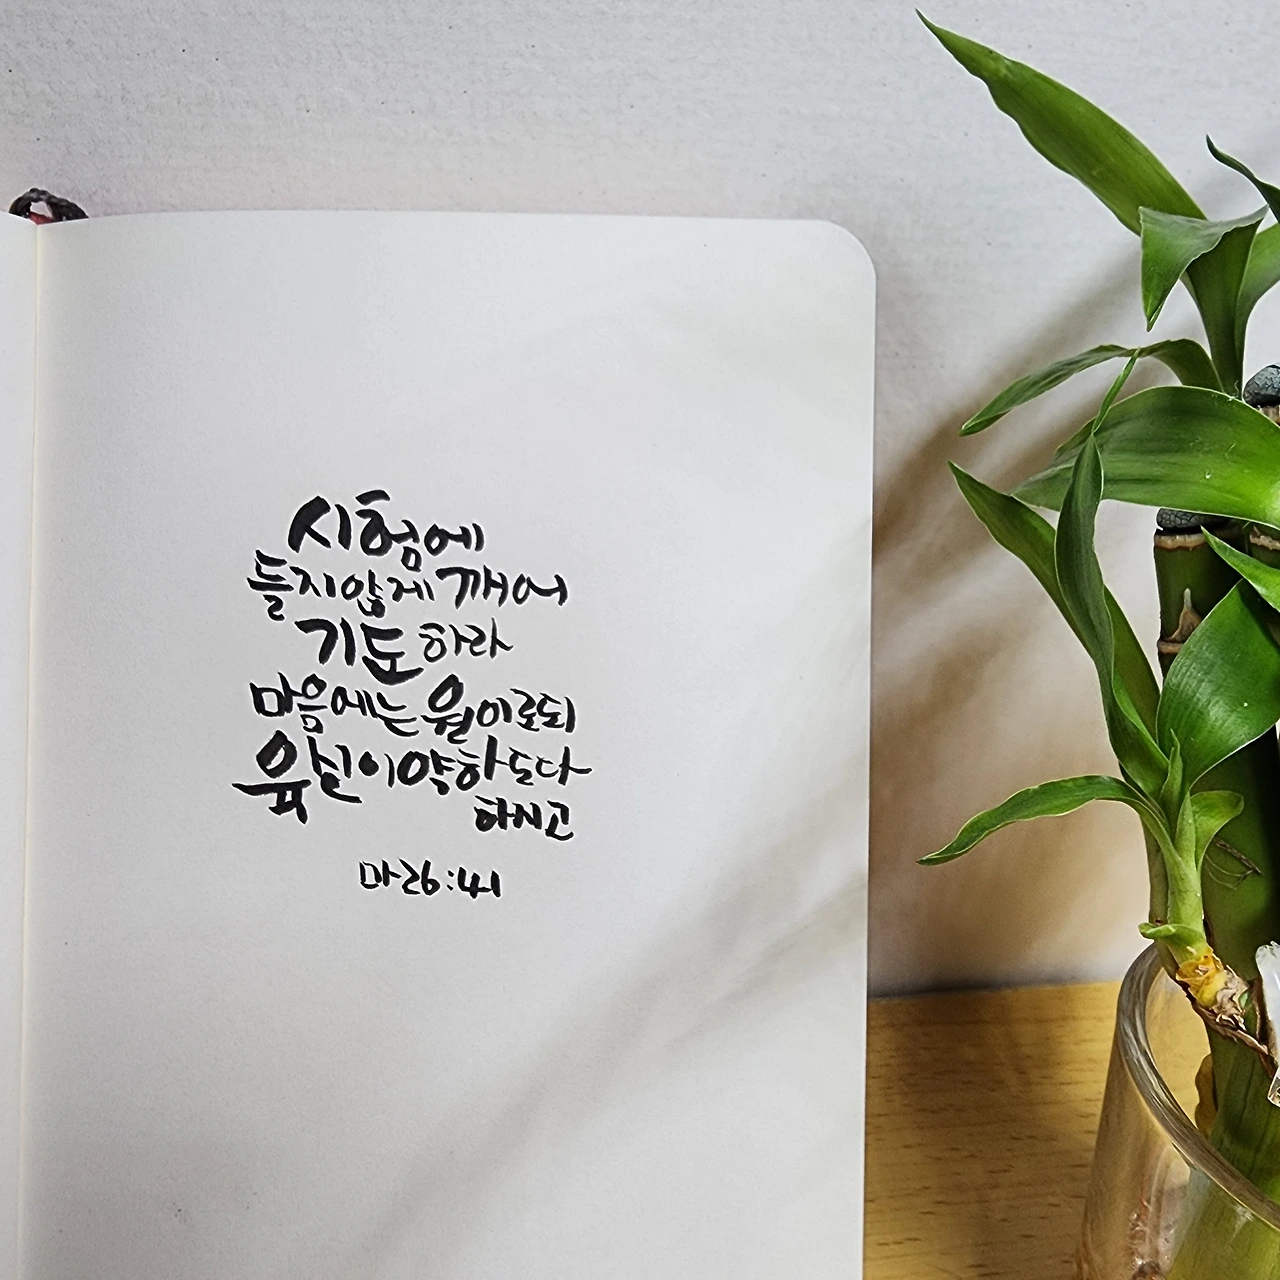 시험에
들지않게 깨어
기도하라
마음에는 원이로되
육신이 약하도다
하시고
마26:41